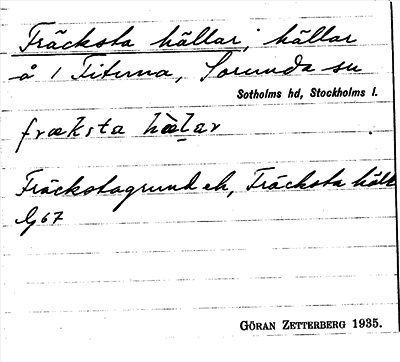 Fräcksta hällar, hällar
å 1 Fituna, Sorunda sn
Sotholms hd, Stockholms l.
fræksta hæ̀lar
Fräckstagrund ek, Fräcksta häll
lj 67
GÖRAN ZETTERBERG 1935.